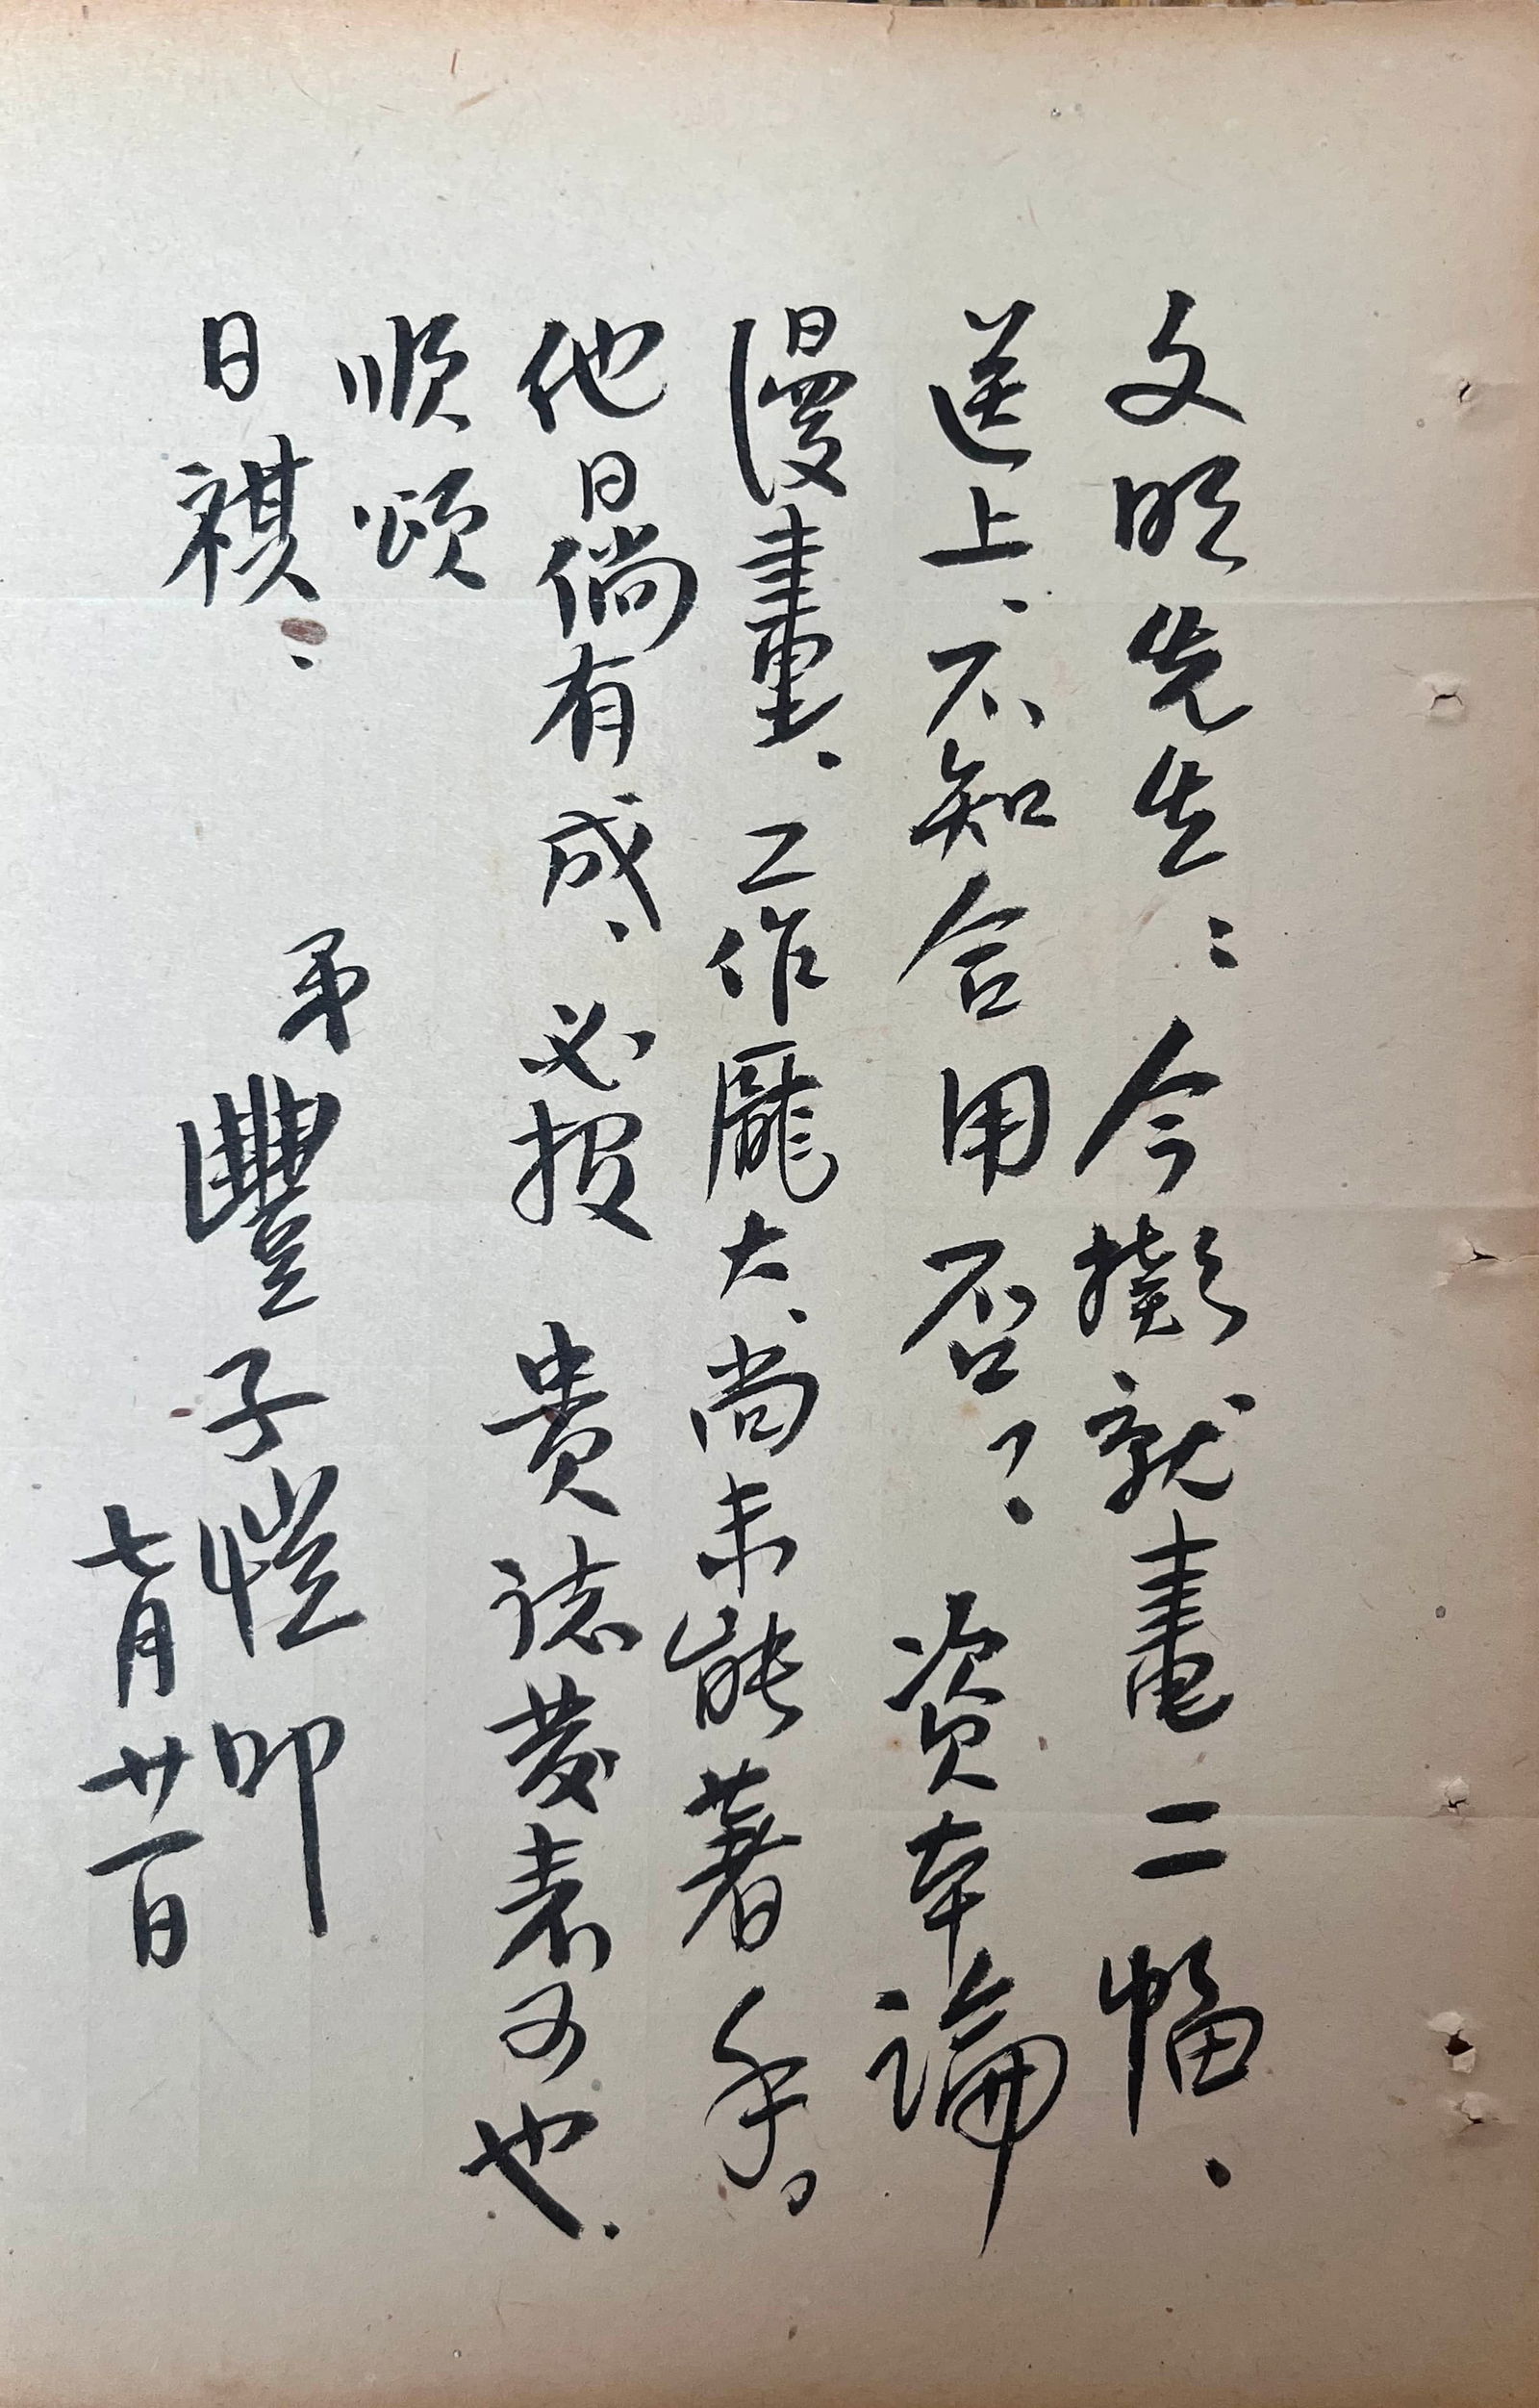 文明先生：今擬就畫二幅、
送上、不知合用否？資本論
漫畫、工作龐大、尚未能著手。
他日倘有成、必投 貴誌發表可也、
順頌
日祺、
弟豐子愷叩
七月廿一日